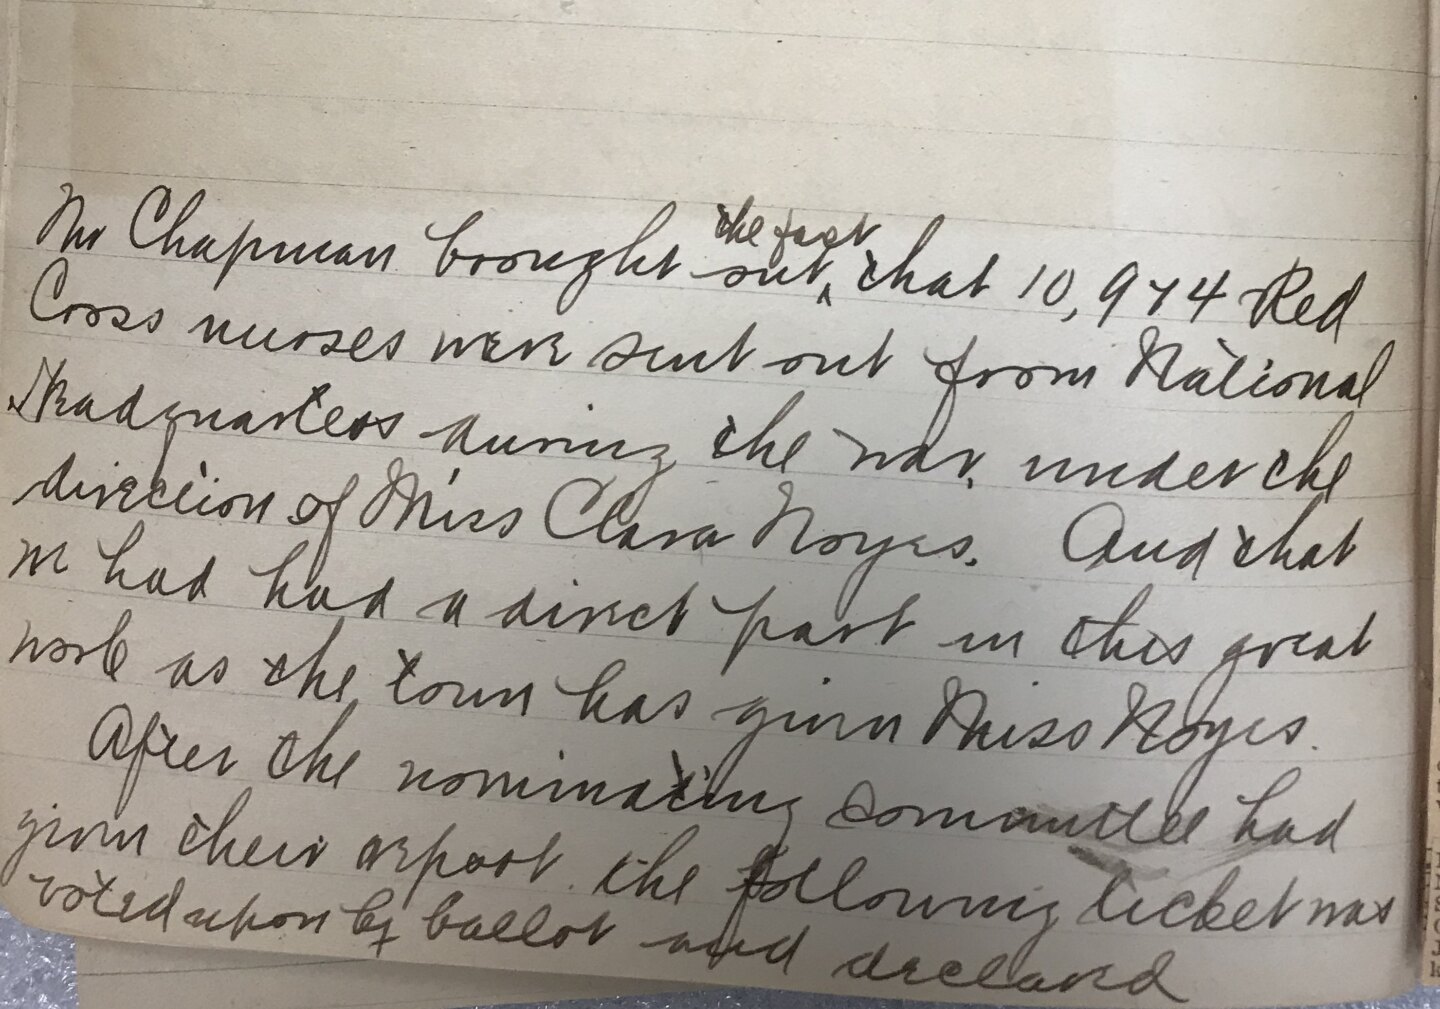 Mr Chapman brought out the fact that 10,974 Red
Cross nurses were sent out from National
Headquarters during the war, under the
direction of Miss Clara Noyes. And that
we had had a direct part in this great
work as the town has given Miss Noyes.
After the nominating committee had
given their report the following ticket was
voted upon by ballot and declared